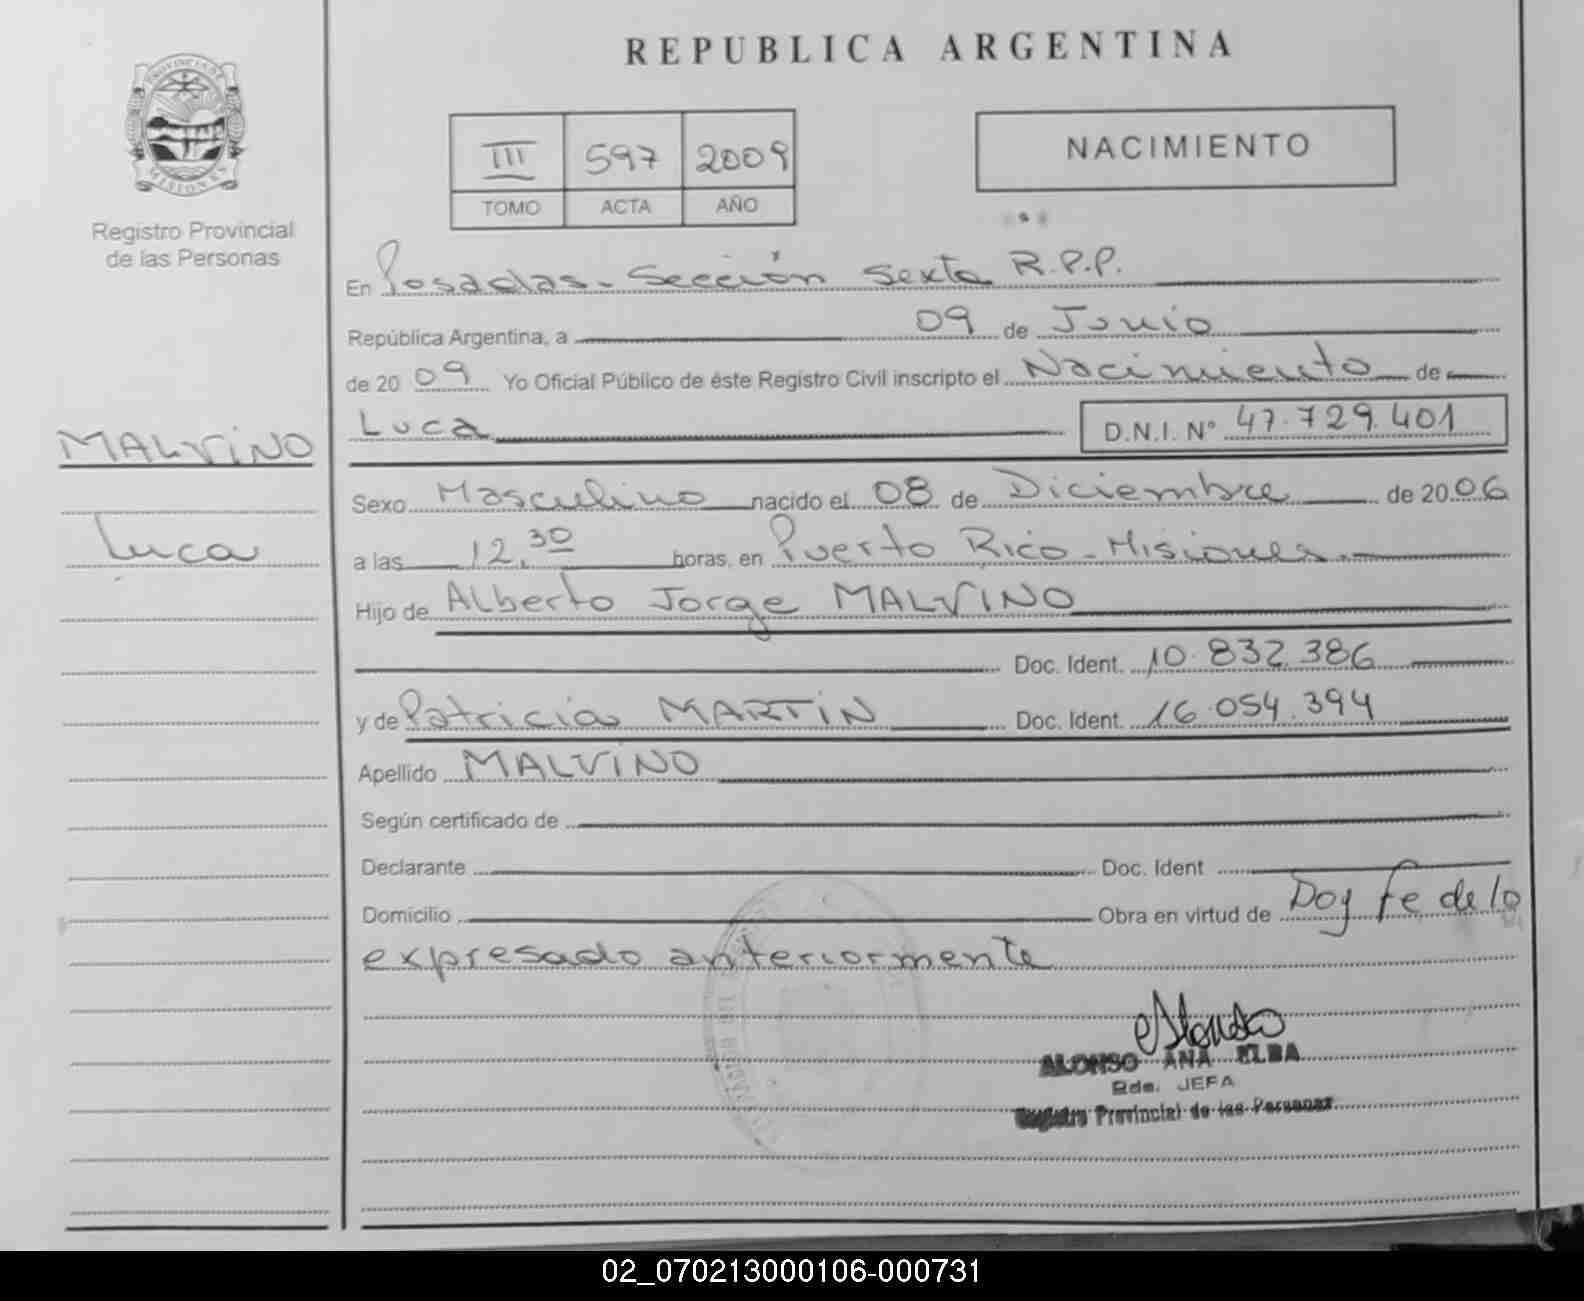 REPUBLICA ARGENTINA
III 597 2009
TOMO ACTA AÑO
NACIMIENTO
PROVINCIA DE
MISIONES
Registro Provincial
de las Personas
En Posadas - Sección Sexta R.P.P.
República Argentina, a 09 de Junio
de 20 09 Yo Oficial Público de éste Registro Civil inscripto el Nacimiento de
Luca D.N.I. Nº 47.729.401
MALVINO
Luca
Sexo Masculino nacido el 08 de Diciembre de 20 06
a las 12,30 horas, en Puerto Rico - Misiones
Hijo de Alberto Jorge MALVINO
Doc. Ident. 10.832.386
y de Patricia MARTIN Doc. Ident. 16.054.394
Apellido MALVINO
Según certificado de
Declarante Doc. Ident
Domicilio Obra en virtud de Doy fe de lo
expresado anteriormente
ALONSO ANA ELBA
JEFA
Registro Provincial de las Personas
02_070213000106-000731